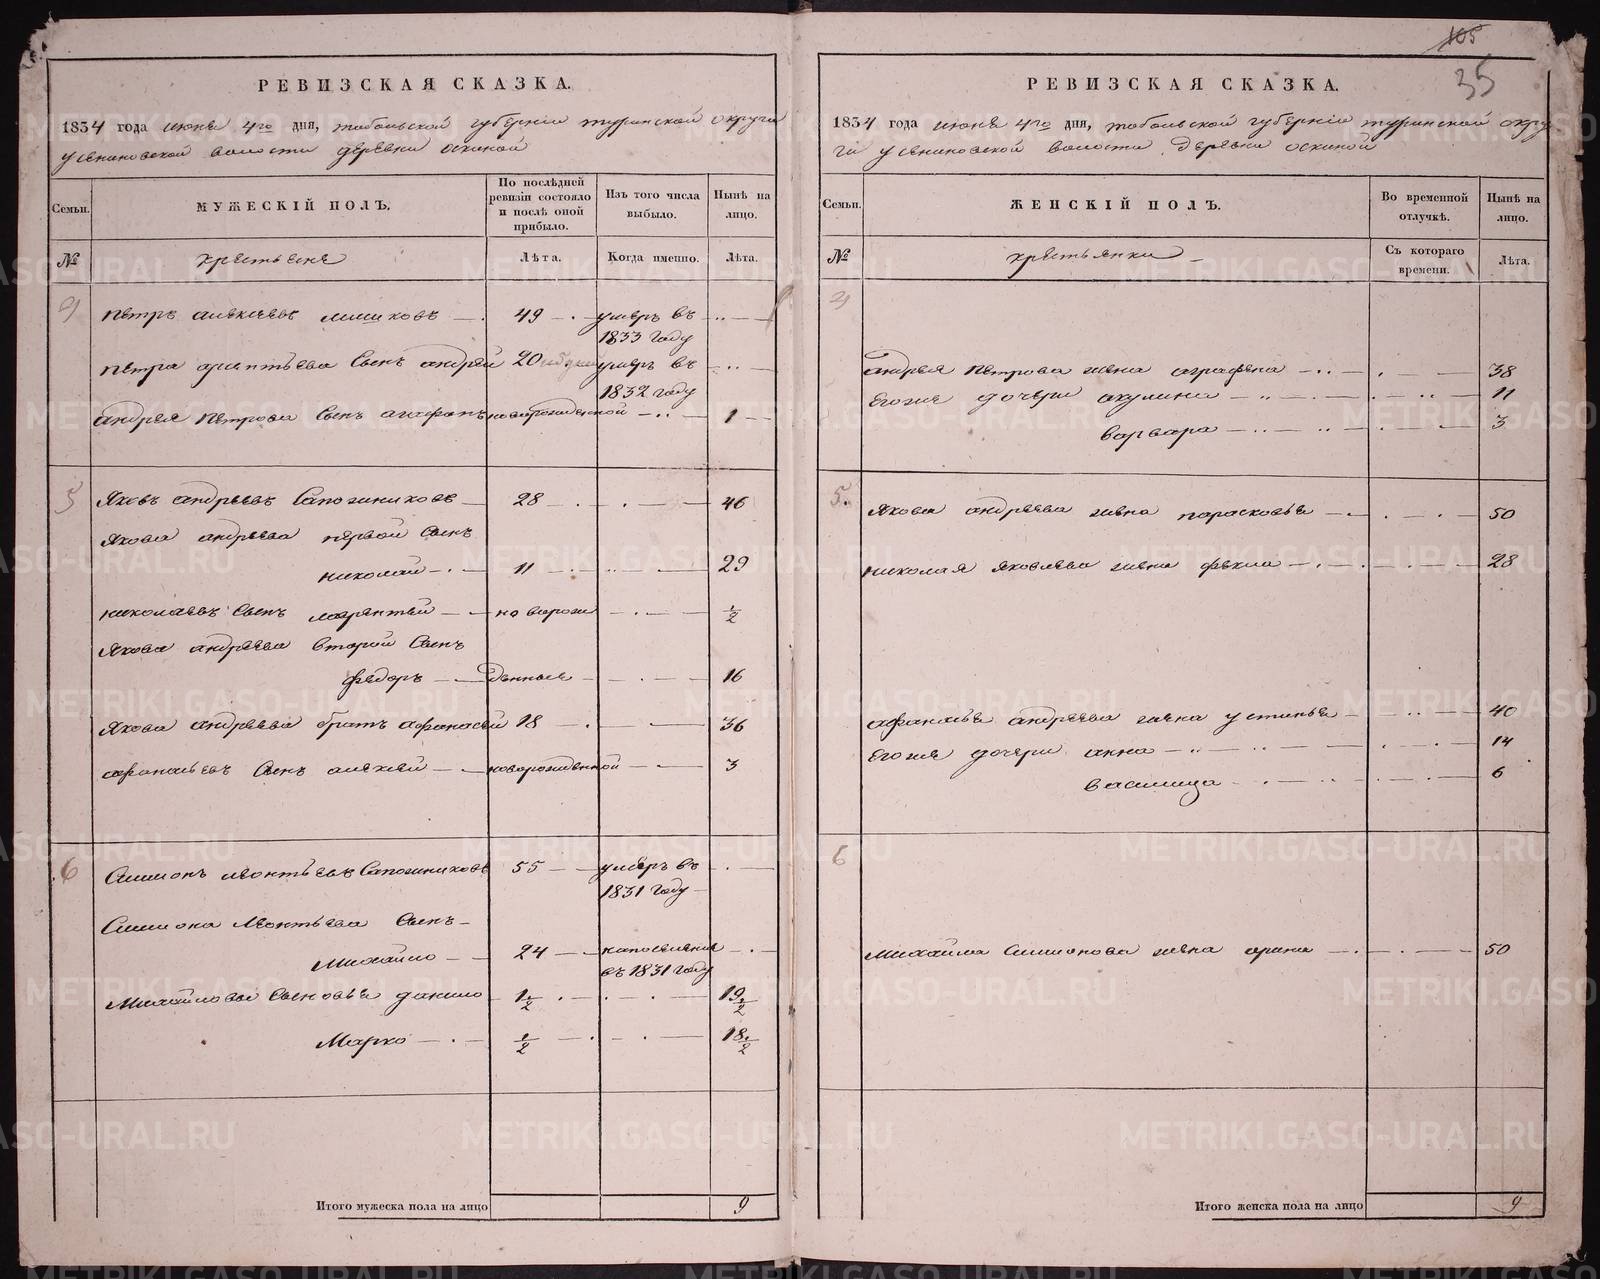 РЕВИЗСКАЯ СКАЗКА.
1834 года июня 4го дня, тобольской губернiи туринской округи
усениновской волости деревни оскиной
Семьи.
МУЖЕСКIЙ ПОЛЪ.
По послѣдней ревизiи состояло и послѣ оной прибыло.
Изъ того числа выбыло.
Нынѣ на лицо.
№
крестьяне
Лѣта.
Когда именно.
Лѣта.
4
петръ алексѣевъ 49 умеръ въ
1833 году
петра сынъ андрей 20 умеръ въ
1832 году
андрея петрова сынъ новорожденной 1
5
Яковъ андреевъ Сапожниковъ 28 46
Якова андреева первой сынъ
николай 11 29
николаевъ сынъ лаврентей новорож ½
Якова андреева второй сынъ
федоръ денные 16
Якова андреева братъ афанасей 18 36
афанасьевъ сынъ алексей новорожденной 3
6
Симионъ леонтьевъ Сапожниковъ 55 умеръ въ
1831 году
Симиона Леонтьева сынъ
Михайло 24 на поселение
въ 1831 году
Михайловы сыновье данило 1½ 19½
Марко ½ 18½
Итого мужеска пола на лицо 9
105
35
РЕВИЗСКАЯ СКАЗКА.
1834 года июня 4го дня, тобольской губернiи туринской окру
ги усениновской волости деревни оскиной
Семьи.
ЖЕНСКIЙ ПОЛЪ.
Во временной отлучкѣ.
Нынѣ на лицо.
№
крестьянки
Съ котораго времени.
Лѣта.
4
андрея петрова жена аграфена 38
Егоже дочери акулина 11
варвара 3
5.
Якова андреева жена парасковья 50
николая яковлева жена фекла 28
афанасья андреева жена устинья 40
Егоже дочери анна 14
василиса 6
6
Михайла Симионова жена арина 50
Итого женска пола на лицо 9
METRIKI.GASO-URAL.RU